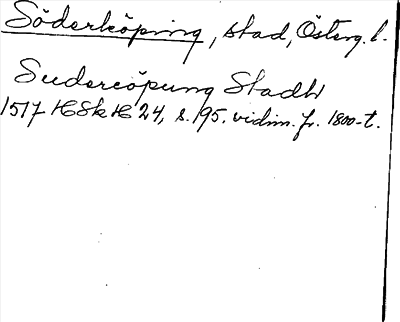 Söderköping, stad, Österg. l.
Sudercöpung Stadh
1517 HSkH 24, s. 195. vidim. fr. 1800-t.